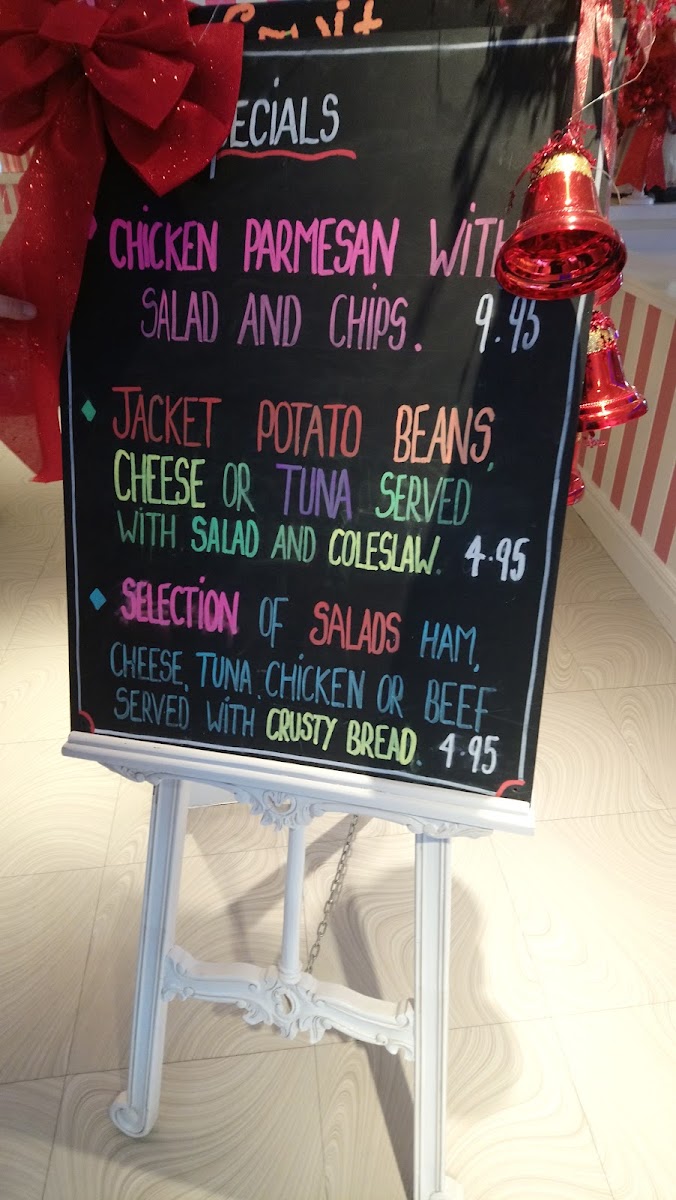 SPECIALS
CHICKEN PARMESAN WITH
SALAD AND CHIPS. 9.95
JACKET POTATO BEANS,
CHEESE OR TUNA SERVED
WITH SALAD AND COLESLAW. 4.95
SELECTION OF SALADS HAM,
CHEESE, TUNA, CHICKEN OR BEEF
SERVED WITH CRUSTY BREAD. 4.95